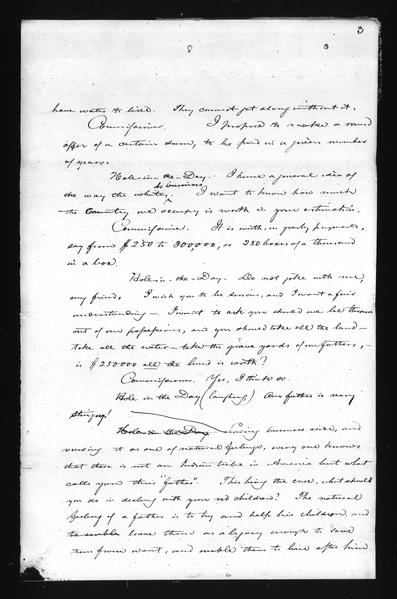 3
have water to live. They cannot get along without it.
Commissioner. I propose to make a round
offer of a certain sum, to be paid in a given number
of years.
Hole-in-the-Day. I have a general idea of
the way the whites do business, I want to know how much
the Country we occupy is worth in your estimation.
Commissioner. It is worth, in yearly payments,
say from $250 to 300,000, or 250 boxes of a thousand
in a box.
Hole-in-the-Day. Do not joke with me,
my friend, I wish you to be serious, and I want a fair
understanding— I want to ask you should we be thrown
out of our possessions, and you should take all the land—
take all the water— take the grave yards of our fathers,—
is $250000 all the land is worth?
Commissioner. Yes, I think so.
Hole in the Day (laughing) Our father is very
stingy!
Hole in the Day business aside, and
viewing it as one of natural feelings, every one knows
that there is not an Indian tribe in America but what
calls you their "father". This being the case, what should
you do in dealing with your red children? The natural
feeling of a father is to try and help his children, and
to enable leave them as a legacy enough to save
them from want, and enable them to live after him